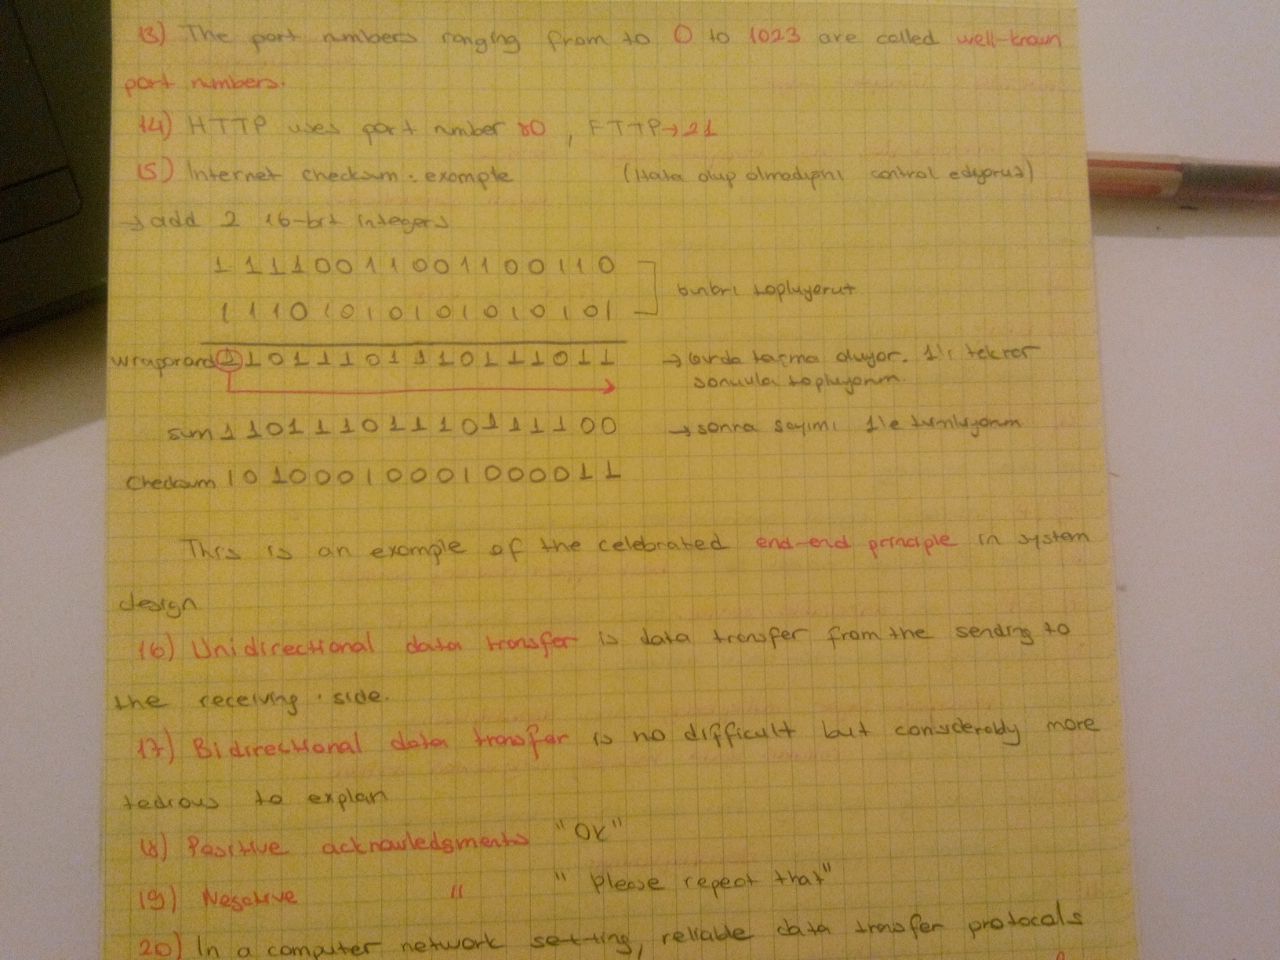 13) The port numbers ranging from to 0 to 1023 are called well-known
port numbers.
14) HTTP uses port number 80, FTTP→21
15) Internet checksum: example (Hata olup olmadıgını control ediyoruz)
→ add 2 16-bit integers
1 1 1 1 0 0 1 1 0 0 1 1 0 0 1 1 0
1 1 1 0 1 0 1 0 1 0 1 0 1 0 1 0 1 binbri topluyoruz
wraparord 1 1 0 1 1 1 0 1 1 1 0 1 1 1 0 1 1 → burda taşma oluyor. 1'i tekrar
sonucula topluyorum
sum 1 1 0 1 1 1 0 1 1 1 0 1 1 1 1 0 0 → sonra sayımı 1'e tumluyorum
Checksum 1 0 1 0 0 0 1 0 0 0 1 0 0 0 0 1 1
This is an example of the celebrated end-end principle in system
design
16) Unidirectional data transfer is data transfer from the sending to
the receiving side.
17) Bidirectional data transfer is no difficult but considerably more
tedious to explain
18) Positive acknowledgments "OK"
19) Negative " "Please repeat that"
20) In a computer network setting, reliable data transfer protocols